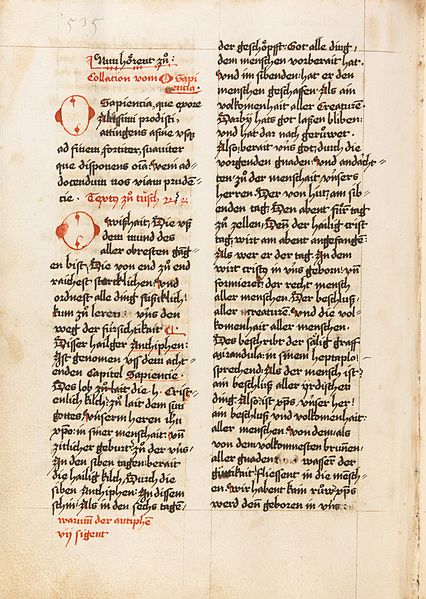 535
Nun hörent zů:
Collation vom O Sapi
entia.
O Sapientia, que ex ore
Altissimi prodisti,
attingens a fine vsq
ad finem, fortiter, suauiter
que disponens oīa: veni ad
docendum nos viam prude
tie. Textg zů tüsch
O wishait, Die vß
dem mund des
aller obresten gāg
en bist, Die von end zů end
raichest starcklichen, vnd
ordnest alle ding süsslich,
kum zů leren: vns den
weg der fürsichtikait
Disser hailger Anthiphen:
Ist genomen vß dem acht
enden Capitel Sapientie.
Des lob zů lait die h. Crist
enlich kilch, zů lait dem sun
gottes, vnserm heren ihū
xpo: in siner menschait: vn
zitlicher geburt, zů der vns,
An den siben tagen berait
die hailig kilch, Durch die
siben Anthiphen: An dissem
schin, Als in den sechs tagē,
warumb der antiphē
vij sigent
der geschöpfft, Got alle ding,
dem menschen vorberait hat.
Vnd im sibenden, hat er den
menschen geschafen, Als am
volkomenhait aller Creaturē.
Darby hats got lassen bliben:
vnd hat dar nach gerůwet.
Also, berait vns got, durch die
vorgenden gnaden, vnd andäch
ten, zů der menschait vnsers
herren. Der von hüt, am sib
enden tag, Den abent für tag
zů zellen, Den der hailig crist
tag, wirt am abent angefangē:
Als wer er der tag. An dem
wirt cristg in vns geborn: vn
formieret, der recht mensch
aller menschen, Der beschluß
aller creaturē. Vnd die vol
komenhait aller menschen.
Des beschribt der sälig graff
mirandula: in sinem heptaplo:
sprechend, Als der mensch ist:
am beschluß aller yrdischen
ding, Also: ist xps, vnser her:
am beschluß vnd volkomenhait:
aller menschen, von dem als
von dem volkomnesten brunnē,
aller gnaden, wasser der
gůttikait, fliessent in die mēsch
en, wir habent kain růw, xps
werd den geboren in vns: